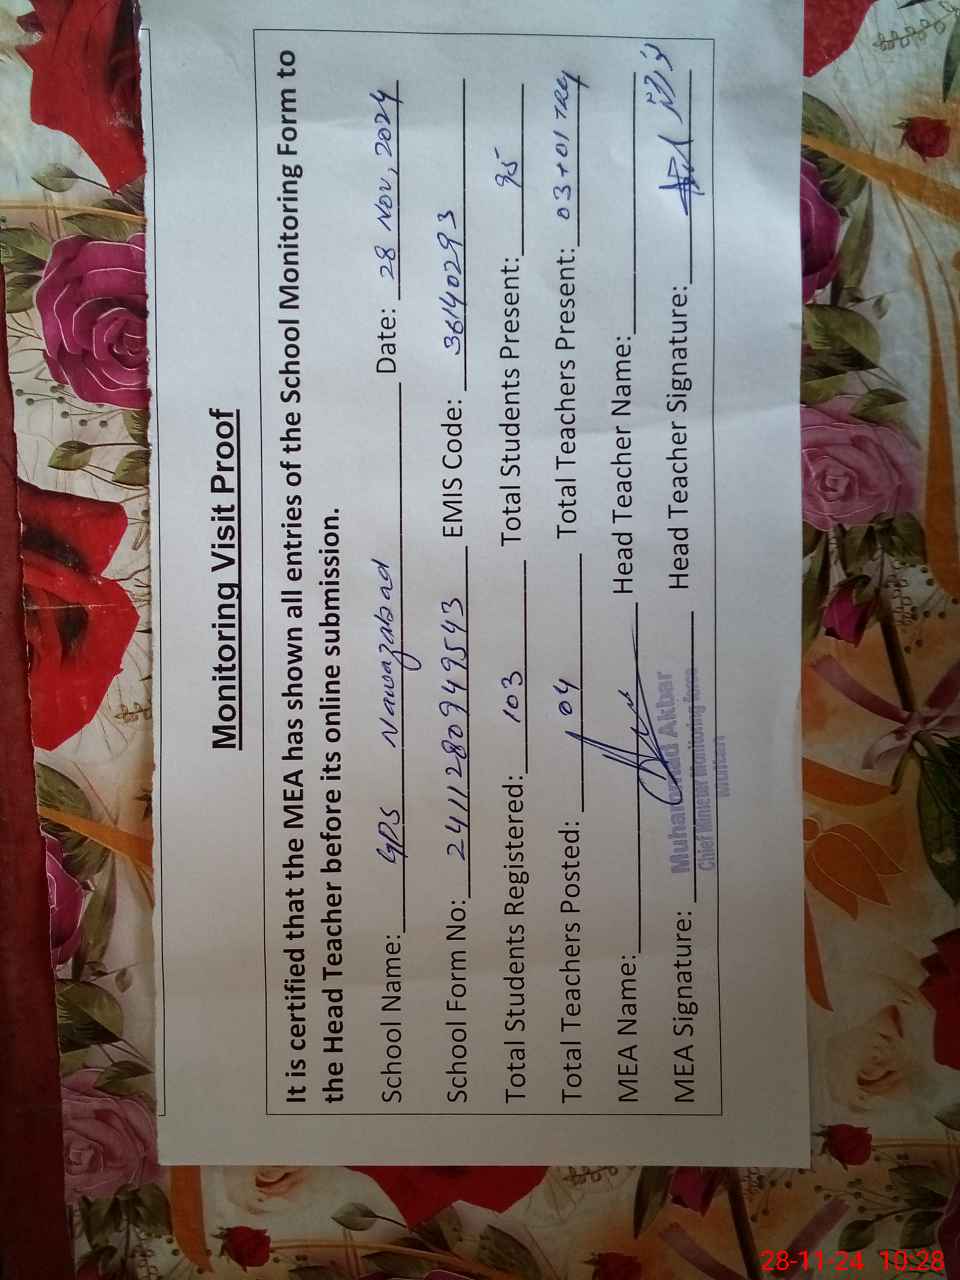 Monitoring Visit Proof
It is certified that the MEA has shown all entries of the School Monitoring Form to
the Head Teacher before its online submission.
School Name: GPS Nawazabad Date: 28 Nov, 2024
School Form No: 241128094949543 EMIS Code: 36140293
Total Students Registered: 103 Total Students Present: 95
Total Teachers Posted: 04 Total Teachers Present: 03+01
MEA Name: Head Teacher Name:
MEA Signature: Head Teacher Signature:
Muhammad Akbar
Chief Minister Monitoring Force
Multan
28-11-24 10:28